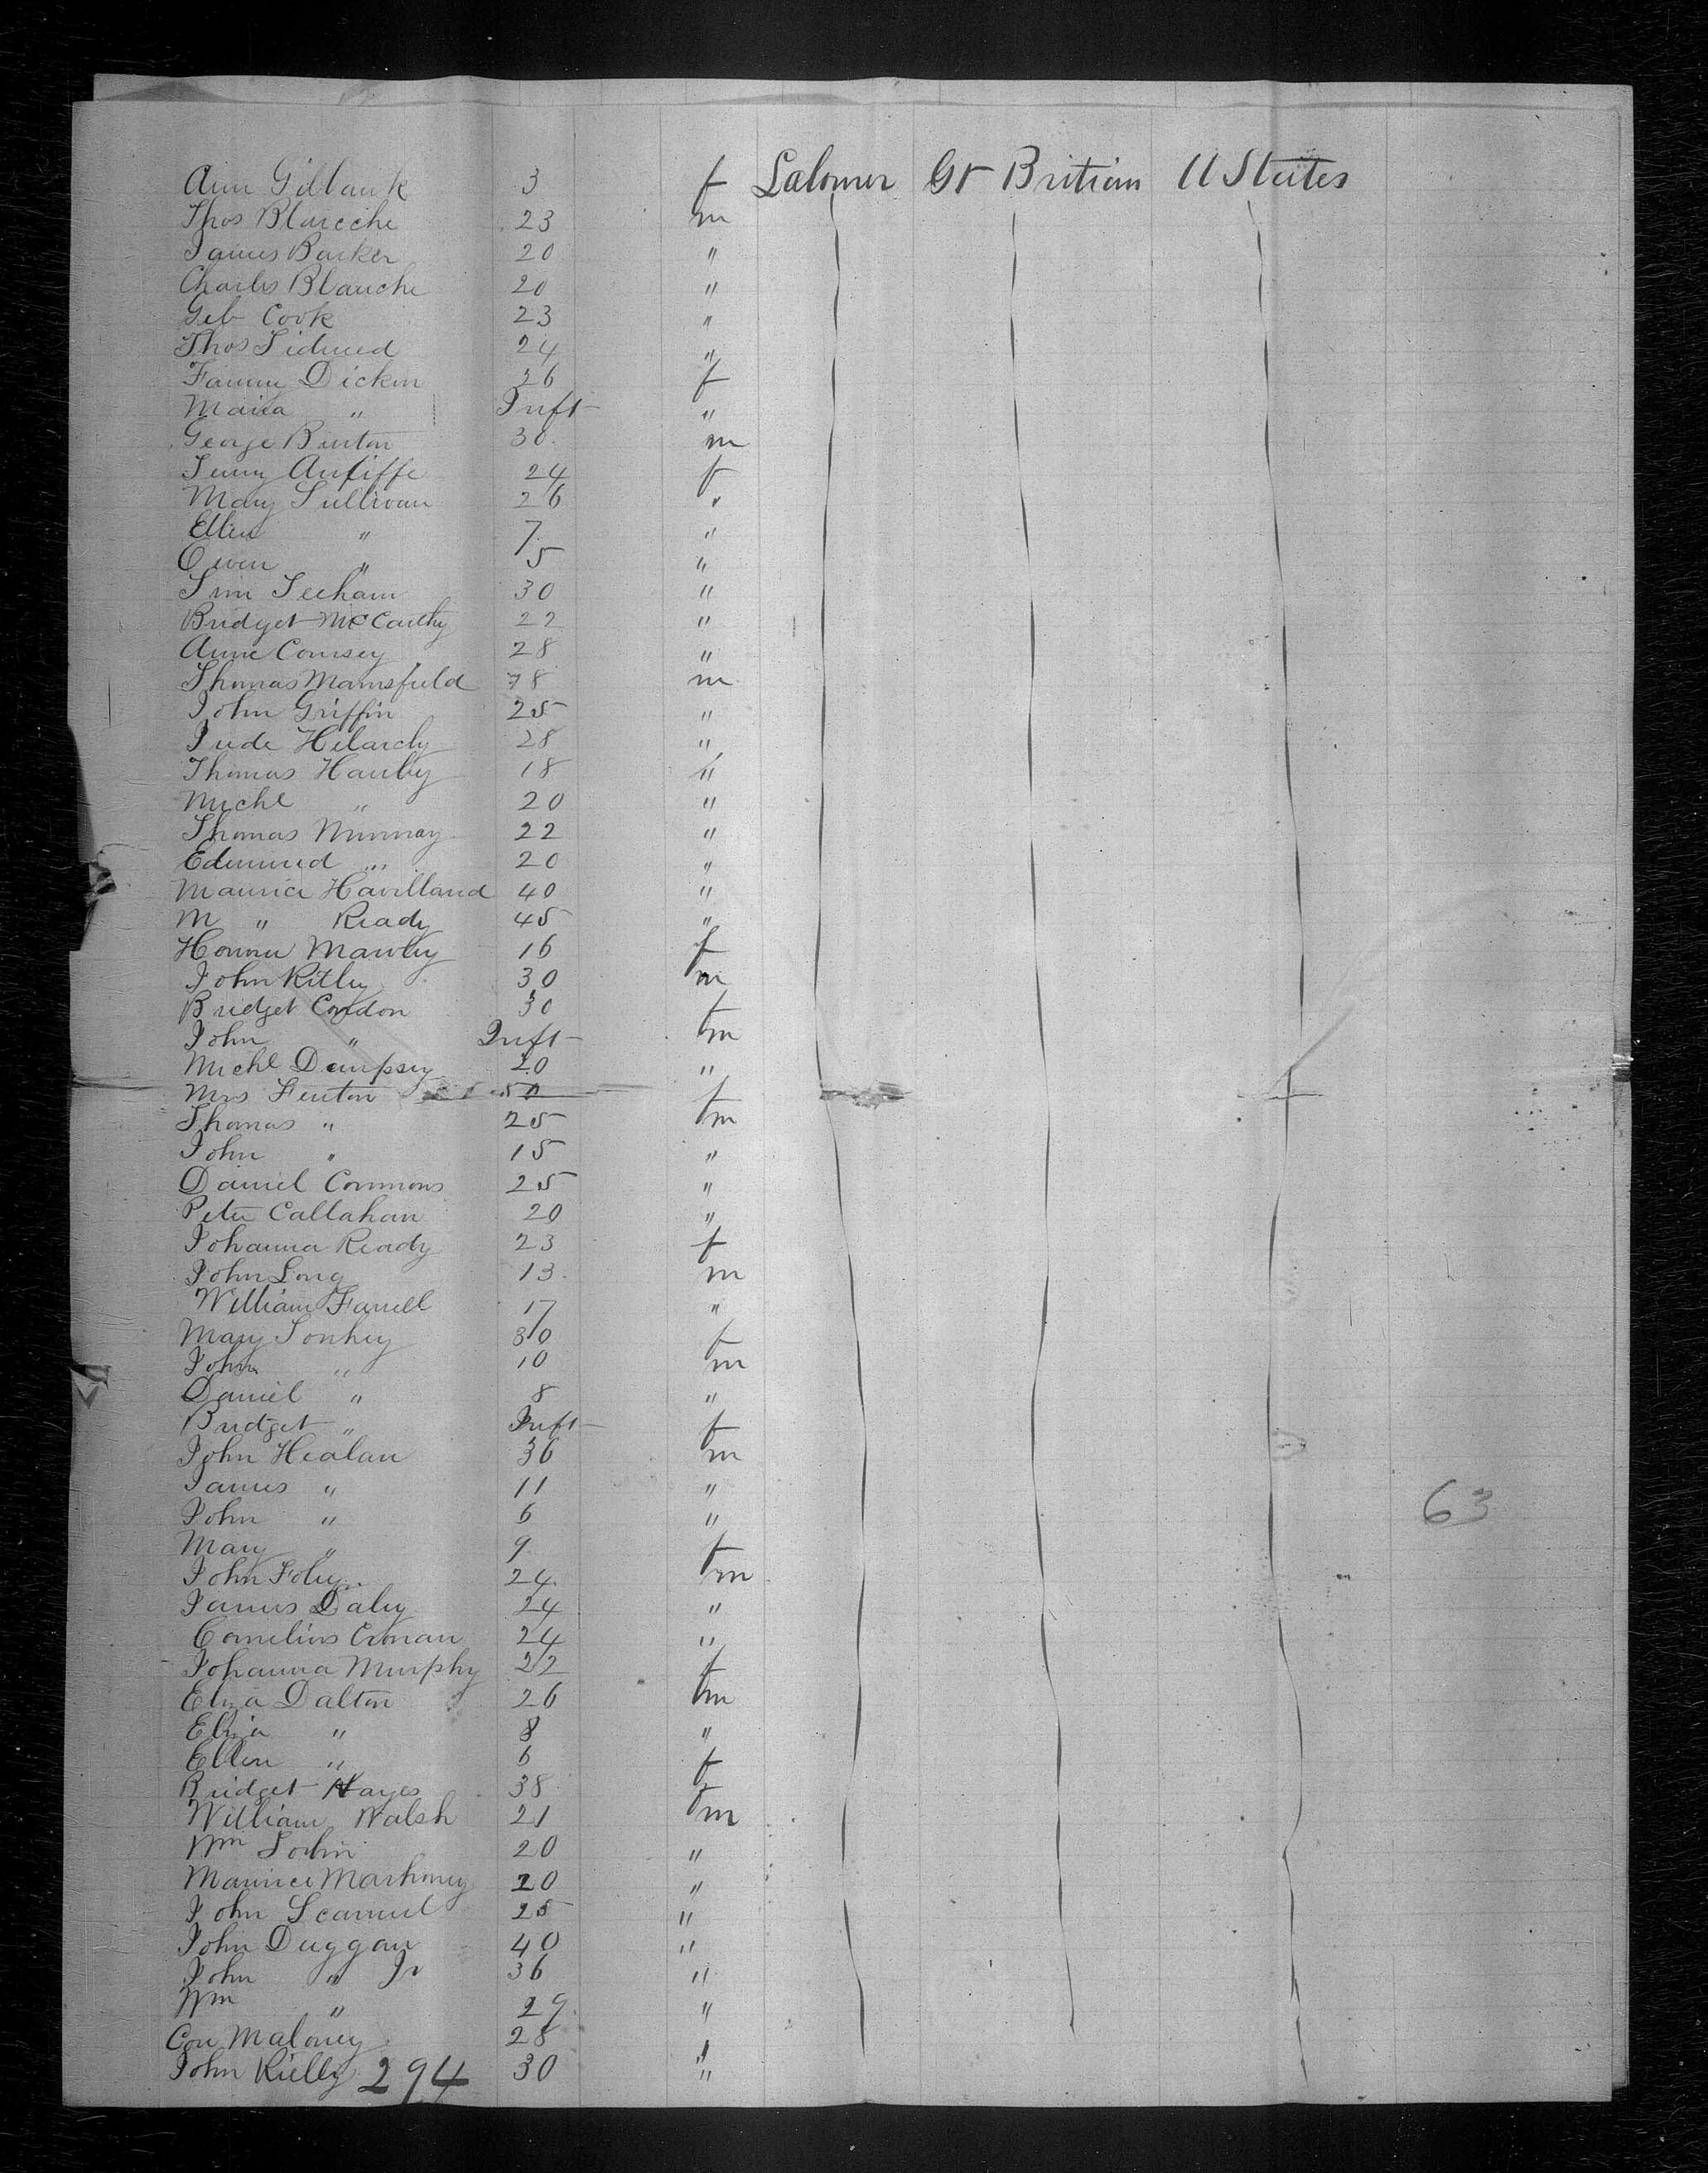 Ann Gilbank 3 f Labourer Gt Britian U States
Thos Blareche 23 m
James Barker 20 "
Charles Blanche 20 "
Geb Cook 23 "
Thos 24 "
Fanny Dickin 26 f
Maria " Inft "
George Burton 30 m
Jenny 24 f
Mary Sullivan 26 "
Ellen " 7 "
Owen " 5 "
30 "
Bridget McCarthy 22 "
Annie Comsey 28 "
Thomas Mansfield 78 m
John Griffin 25 "
28 "
Thomas Hanby 18 "
Michl " 20 "
Thomas Murray 22 "
Edmund " 20 "
Maurice Havilland 40 "
M " Ready 45 "
16 f
John Kitley 30 m
Bridget Condon 30 f
John " Inft m
Michl Dempsey 20 "
Mrs Fenton 50 f
Thomas " 25 m
John " 15 "
Daniel Commons 25 "
Peter Callahan 20 "
Johanna Ready 23 f
John Long 13 m
William Farrell 17 "
Mary 30 f
John " 10 m
Daniel " 8 "
Bridget " Inft f
John Healan 36 m
James " 11 "
John " 6 "
63
Mary " 9 f
John Foley 24 m
James Daley 24 "
Cornelius Cronan 24 "
Johanna Murphy 22 f
Eliza Dalton 26 m
Eliza " 8 "
Ellen " 6 f
Bridget Hayes 38 f
William Walsh 21 m
Wm 20 "
Maurice Marhoney 20 "
John Scannel 25 "
John Duggan 40 "
John " Jr 36 "
Wm " 29 "
Con Maloney 28 "
John Kielly 294 30 "